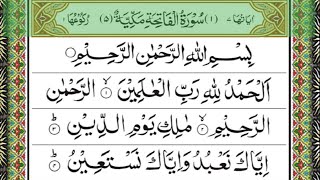 اٰیَاتُهَا ٧ (١) سُوْرَةُ الْفَاتِحَةِ مَكِّیَّةٌ (٥) رُكُوْعُهَا ١
بِسْمِ اللّٰهِ الرَّحْمٰنِ الرَّحِیْمِ
اَلْحَمْدُ لِلّٰهِ رَبِّ الْعٰلَمِیْنَ ۙ﴿١﴾ الرَّحْمٰنِ
الرَّحِیْمِ ۙ﴿٢﴾ مٰلِكِ یَوْمِ الدِّیْنِ ؕ﴿٣﴾
اِیَّاكَ نَعْبُدُ وَ اِیَّاكَ نَسْتَعِیْنُ ؕ﴿٤﴾